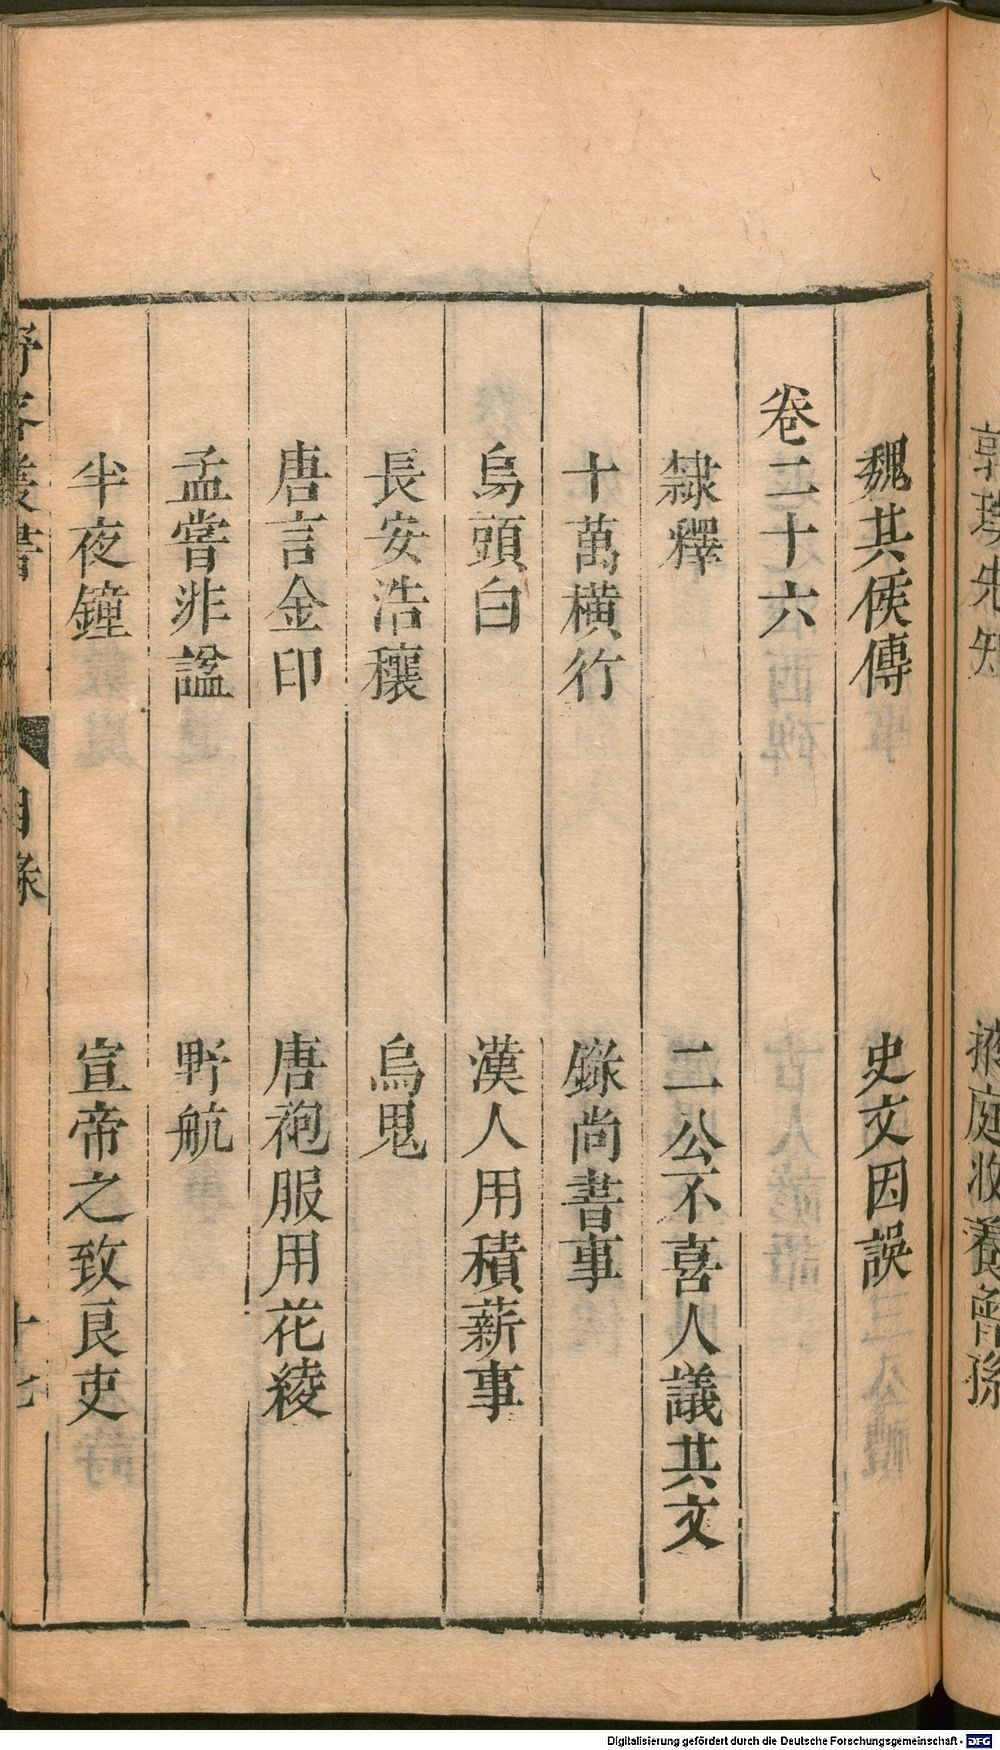 魏其侯傳　史文因誤
卷二十六
隸釋　二公不喜人議其文
十萬橫行　錄尚書事
烏頭白　漢人用積薪事
長安浩穰　烏鬼
唐言金印　唐袍服用花綾
孟嘗非諡　野航
半夜鐘　宣帝之致良吏
野客叢書　目錄　十七
Digitalisierung gefördert durch die Deutsche Forschungsgemeinschaft - DFG